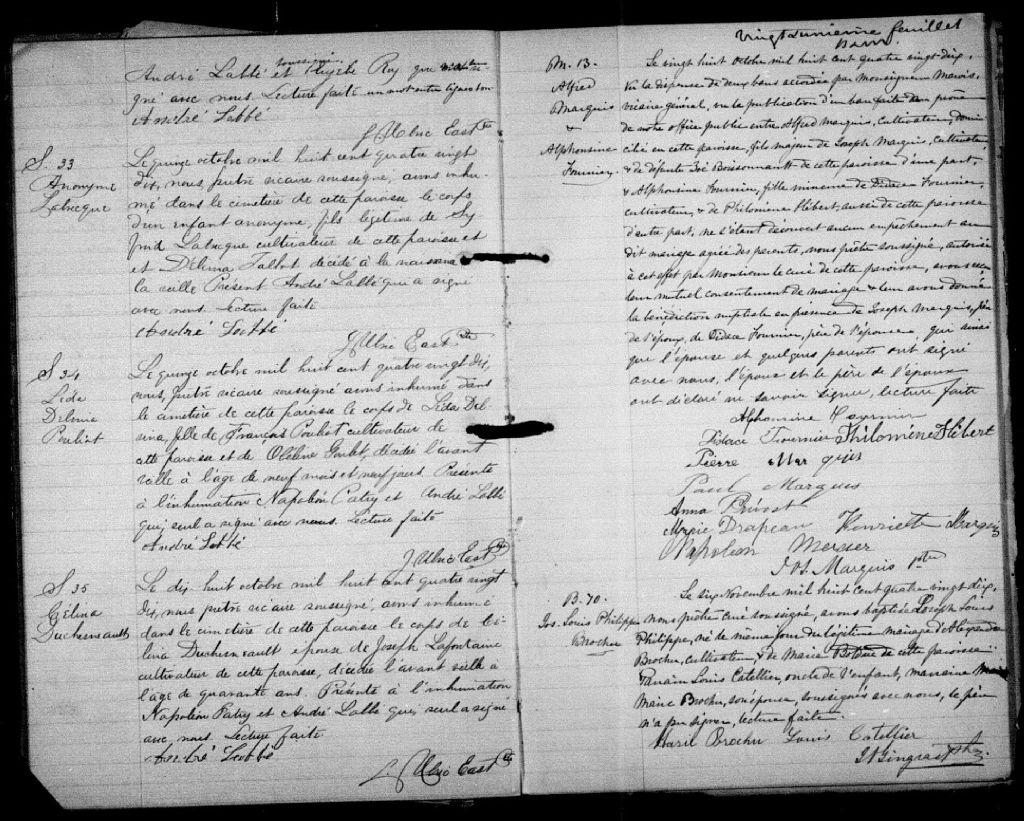 soussigné
André Labbé et Eusèbe Roy que
gné avec nous. Lecture faite un mot entre lignes bon
André Labbé
J Ulric East Ptre
S. 33
Anonyme
Labrecque
Le quinze octobre mil huit cent quatre vingt
dix, nous, prêtre vicaire soussigné, avons inhu-
mé dans le cimetière de cette paroisse le corps
d'un enfant anonyme, fils légitime de
Labrecque cultivateur de cette paroisse et
et Délima Talbot decidé à la naissance
la veille Présent André Labbé qui a signé
avec nous. Lecture faite
André Labbé
J Ulric East Ptre
S 34
Léda
Delvina
Pouliot
Le quinze octobre mil huit cent quatre vingt dix,
nous, prêtre vicaire soussigné avons inhumé dans
le cimetière de cette paroisse le corps de Léda Del-
vina, fille de François Pouliot cultivateur de
cette paroisse et de Goulet, décidée l'avant
veille à l'âge de neuf mois et neuf jours. Présents
à l'inhumation Napoléon Patry et André Labbé
qui, seul a signé avec nous. Lecture faite
André Labbé
J Ulric East Ptre
S 35
Célina
Duchesneault
Le dix-huit octobre mil huit cent quatre vingt
dix, nous prêtre vicaire soussigné, avons inhumé
dans le cimetière de cette paroisse le corps de Cé-
lina Duchesneault epouse de Joseph Lafontaine
cultivateur de cette paroisse, décidée l'avant veille à
l'âge de quarante ans. Présents à l'inhumation
Napoléon Patry et André Labbé qui, seul a signé
avec nous. Lecture faite
André Labbé
J Ulric East Ptre
Vingt deuxième feuillet
M. 13.
Alfred
Marquis
&
Alphonsine
Fournier.
Le vingt huit octobre mil huit cent quatre vingt-dix,
Vu la dispense de deux bans accordée par monseigneur Marois,
vicaire général, vu la publication d'un ban faite au prône
de notre office public entre Alfred Marquis, cultivateur, domi-
cilié en cette paroisse, fils majeur de Joseph Marquis, cultivateur,
& de défunte Zoé Boissonnault de cette paroisse d'une part,
& Alphonsine Fournier, fille mineure de Didace Fournier,
cultivateur, & de Philomène Hébert, aussi de cette paroisse
d'autre part, ne s'étant découvert aucun empêchement au
dit mariage agréé des parents, nous prêtre soussigné, autorisé
à cet effet par Monsieur le curé de cette paroisse, avons reçu
leur mutuel consentement de mariage & leur avons donné
la bénédiction nuptiale en présence de Joseph Marquis, père
de l'époux, de Didace Fournier, père de l'épouse, qui ainsi
que l'épouse et quelques parents ont signé
avec nous, l'époux et le père de l'époux
ont déclaré ne savoir signer, lecture faite
Alphonsine Fournier
Didace Fournier Philomène Hébert
Pierre Marquis
Paul Marquis
Anna Prévost
Drapeau Henriette Marquis
Napoléon Mercier
Jos. Marquis Ptre
B. 70.
Jos. Louis Philippe
Brochu
Le six Novembre mil huit cent quatre vingt dix,
nous prêtre curé soussigné, avons baptisé Joseph Louis
Philippe, né le même jour du légitime mariage d'
Brochu, cultivateur, & de Marie Boteau de cette paroisse.
Parrain Louis Catellier, oncle de l'enfant, marraine
Marie Brochu, son épouse, soussignés avec nous, le père
n'a pu signer, lecture faite.
Marie Brochu Louis Catellier
Gingras Ptre